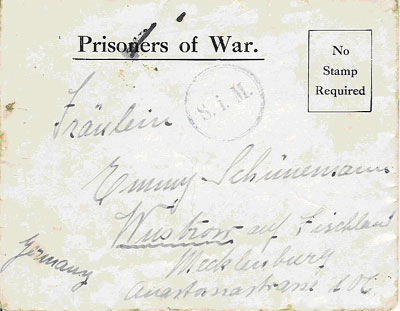 Prisoners of War.
No
Stamp
Required
S.i.M.
Fräulein
Emmy Schünemann
Wustrow auf Fischland
Mecklenburg
Germany